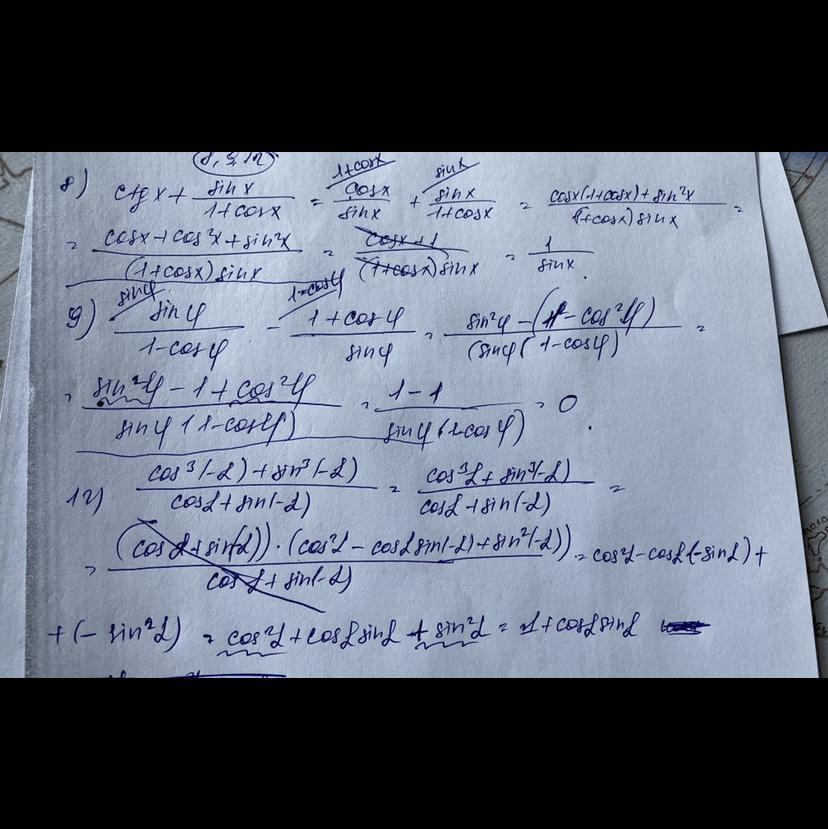 8, 9, 12
8) ctg x + sin x / (1 + cos x) = cos x / sin x (1 + cos x + sin x / (1 + cos x) (sin x = (cos x (1 + cos x) + sin²x) / ((1 + cos x) sin x) =
= (cos x + cos²x + sin²x) / ((1 + cos x) sin x) = (cos x + 1) / ((1 + cos x) sin x) = 1 / sin x.
9) sin φ / (1 - cos φ) (sin φ - (1 + cos φ) / sin φ (1 - cos φ = (sin²φ - (1 - cos²φ)) / (sin φ (1 - cos φ) =
= (sin²φ - 1 + cos²φ) / (sin φ (1 - cos φ)) = (1 - 1) / (sin φ (1 - cos φ)) = 0.
12) (cos³(-α) + sin³(-α)) / (cos α + sin(-α)) = (cos³α + sin³(-α)) / (cos α + sin(-α)) =
= (cos α + sin(-α)) · (cos²α - cos α sin(-α) + sin²(-α)) / (cos α + sin(-α)) = cos²α - cos α (-sin α) +
+ (- sin²α) = cos²α + cos α sin α + sin²α = 1 + cos α sin α